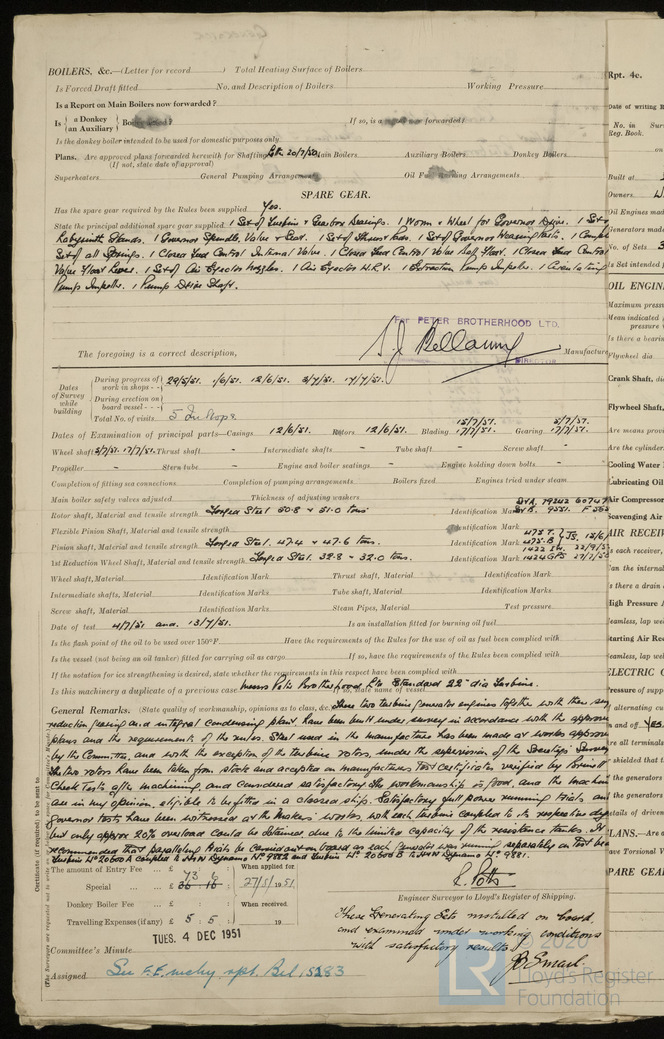 BOILERS, &c.—(Letter for record ) Total Heating Surface of Boilers
Is Forced Draft fitted No. and Description of Boilers Working Pressure
Is a Report on Main Boilers now forwarded?
Is { a Donkey / an Auxiliary } Boiler fitted? If so, is a report now forwarded?
Is the donkey boiler intended to be used for domestic purposes only
Plans. Are approved plans forwarded herewith for Shafting 20/7/50. Main Boilers Auxiliary Boilers Donkey Boilers
(If not, state date of approval)
Superheaters General Pumping Arrangements Oil Fuel Burning Arrangements
SPARE GEAR.
Has the spare gear required by the Rules been supplied Yes.
State the principal additional spare gear supplied 1 Set of Turbine & Gearbox Bearings. 1 Worm & Wheel for Governor Drive. 1 Set
Labyrinth Glands. 1 Governor Spindle, Valve & Gear. 1 Set of Thrust Pads. 1 Set of Governor Wearing Parts. 1 Comp
Set of all Springs. 1 Closed Feed Control Internal Valve. 1 Closed Feed Control Valve Half Float. 1 Closed Feed Control
Valve Float Lever. 1 Set of Air Ejector Nozzles. 1 Air Ejector N.R.V. 1 Extraction Pump Impeller. 1 Circulating
Pump Impeller. 1 Pump Drive Shaft.
For PETER BROTHERHOOD LTD.
The foregoing is a correct description, Manufacture
DIRECTOR
Dates of Survey while building
During progress of work in shops - - 29/5/51. 1/6/51. 12/6/51. 3/7/51. 17/7/51.
During erection on board vessel - - -
Total No. of visits 5 In Shops.
Dates of Examination of principal parts—Casings 12/6/51. Rotors 12/6/51. Blading 17/7/51. Gearing 17/7/51.
Wheel shaft 3/7/51. 17/7/51. Thrust shaft - Intermediate shafts - Tube shaft - Screw shaft -
Propeller - Stern tube - Engine and boiler seatings - Engine holding down bolts -
Completion of fitting sea connections Completion of pumping arrangements Boilers fixed Engines tried under steam
Main boiler safety valves adjusted Thickness of adjusting washers
Rotor shaft, Material and tensile strength Forged Steel 50.8 & 51.0 tons Identification Mark
Flexible Pinion Shaft, Material and tensile strength Identification Mark
Pinion shaft, Material and tensile strength Forged Steel. 47.4 & 47.6 tons. Identification Mark
1st Reduction Wheel Shaft, Material and tensile strength Forged Steel. 32.8 & 32.0 tons. Identification Mark
Wheel shaft, Material Identification Mark Thrust shaft, Material Identification Mark
Intermediate shafts, Material Identification Marks Tube shaft, Material Identification Mark
Screw shaft, Material Identification Marks Steam Pipes, Material Test pressure
Date of test 4/7/51 and. 13/7/51. Is an installation fitted for burning oil fuel
Is the flash point of the oil to be used over 150°F. Have the requirements of the Rules for the use of oil as fuel been complied with
Is the vessel (not being an oil tanker) fitted for carrying oil as cargo If so, have the requirements of the Rules been complied with
If the notation for ice strengthening is desired, state whether the requirements in this respect have been complied with
Is this machinery a duplicate of a previous case Messrs Peter Brotherhood Ltd Standard 22" dia Turbine. If so, state name of vessel
General Remarks. (State quality of workmanship, opinions as to class, &c. These two turbine generator engines together with their
reduction gearing and integral condensing plant have been built under survey in accordance with the approved
plans and the requirements of the rules. Steel used in the manufacture has been made at works approved
by the Committee, and with the exception of the turbine rotors, under the supervision of the Society's Surveyors
The two rotors have been taken from stock and accepted on manufacturers Test certificates verified by Brinell
Check Tests after machining and considered satisfactory. The workmanship is good, and the machin
are in my opinion, eligible to be fitted in a classed ship. Satisfactory full power running trials and
governor tests have been witnessed at the Makers' works with each turbine coupled to its respective dyn
but only approx 20% overload could be obtained, due to the limited capacity of the resistance tanks. It
recommended that paralleling trials be carried out on board as each generator was running separately on test bed
Turbine No. 20600A coupled to Dynamo No. 9882 and Turbine No. 20600B to Dynamo No. 9881.
The amount of Entry Fee ... £ : : When applied for
Special ... £ 73 6 : 27/5/1951.
Donkey Boiler Fee ... £ : : When received.
Travelling Expenses (if any) £ 5 : 5 : 19
R. Potts
Engineer Surveyor to Lloyd's Register of Shipping.
These Generating Sets installed on board,
and examined under working conditions
with satisfactory results.
Committee's Minute TUES. 4 DEC 1951
Assigned See F.E. mchy. rpt. Bel. 15283
© 2020
LR
Lloyd's Register
Foundation
Certificate (if required) to be sent to
Rpt. 4c.
Date of writing R
No. in Sur
Reg. Book.
on
Built at
Owners
Oil Engines made
Generators made
No. of Sets 3
Is Set intended f
OIL ENGIN
Maximum pressu
Mean indicated
pressure
Is there a bearin
Flywheel dia
Crank Shaft,
Flywheel Shaft,
Are means provi
Are the cylinder
Cooling Water
Lubricating Oil
Air Compressor
Scavenging Air
AIR RECEIV
Is each receiver,
Can the internal
Is there a drain
High Pressure A
Seamless, lap we
Starting Air Rec
Seamless, lap we
ELECTRIC G
Pressure of supp
alternating cu
on and off Yes.
are all terminals
shielded that t
the generators
the generators
details of driven
PLANS.—Are
have Torsional V
SPARE GEAR